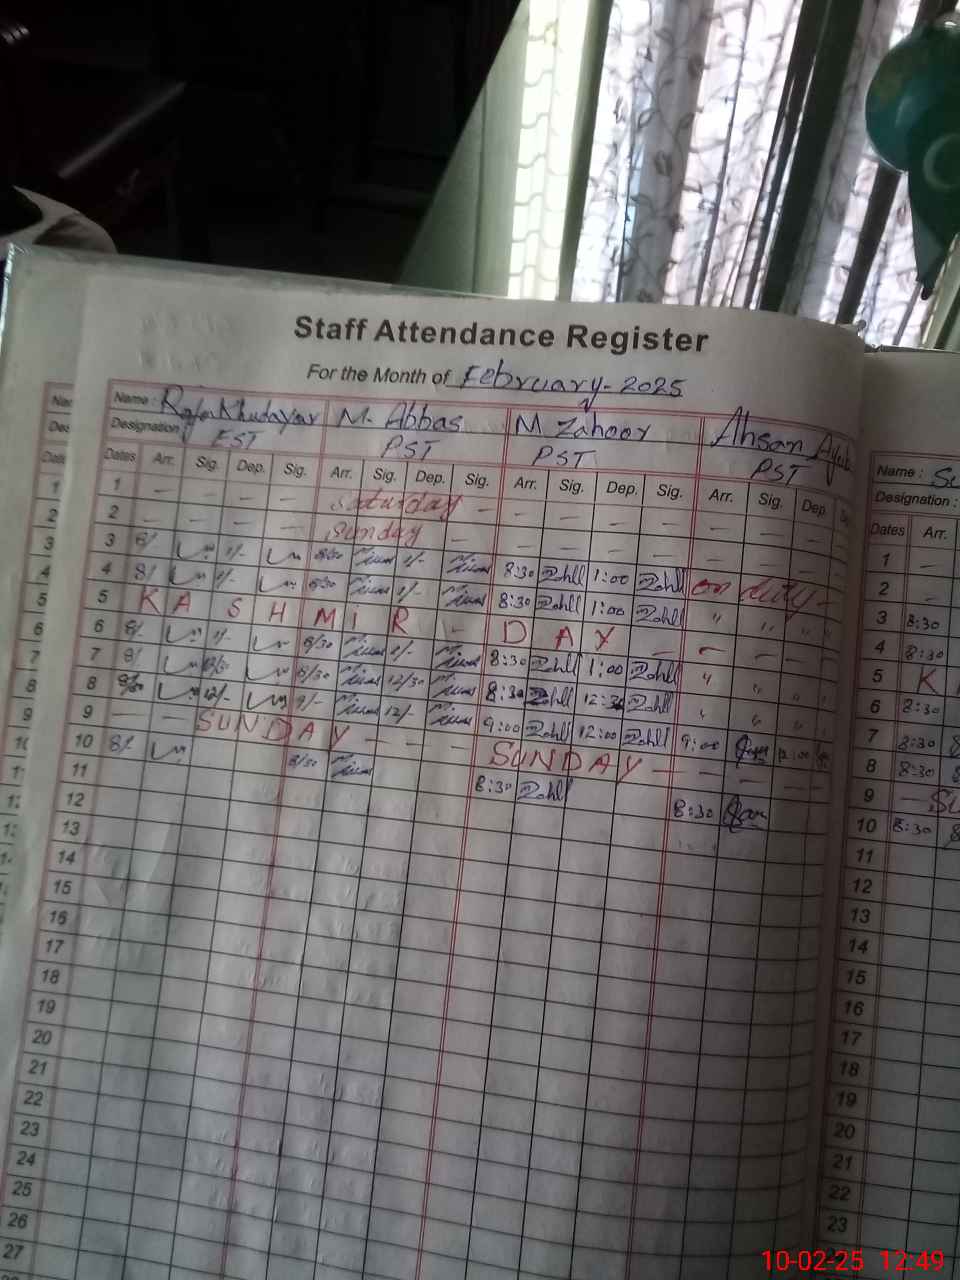 Staff Attendance Register
For the Month of February-2025
Name : Raja Khudayar M. Abbas M Zahoor Ahsan Ayub
Designation EST PST PST PST
Dates Arr. Sig. Dep. Sig. Arr. Sig. Dep. Sig. Arr. Sig. Dep. Sig. Arr. Sig. Dep.
1 — — — — Saturday — — — — —
2 — — — — Sunday — — — — —
3 8/- 1/- 8/30 1/- 8:30 Zohll 1:00 Zohll on duty -
4 8/ 1/- 8/30 1/- 8:30 Zohll 1:00 Zohll " " " "
5 KASHMIR - DAY — — — —
6 8/- 1/- 8/30 1/- 8:30 Zohll 1:00 Zohll " " " "
7 8/- 12/30 8/30 12/30 8:30 Zohll 12:30 Zohll " " " "
8 8/30 12/- 9/- 12/- 9:00 Zohll 12:00 Zohll 9:00 12:00
9 — — SUNDAY - - - SUNDAY — — — —
10 8/- 8/30 8:30 Zohll 8:30
11
12
13
14
15
16
17
18
19
20
21
22
23
24
25
26
27
Name : Su
Designation :
Dates Arr.
1 —
2 —
3 8:30
4 8:30
5 K
6 8:30
7 8:30
8 8:30
9 — Su
10 8:30
11
12
13
14
15
16
17
18
19
20
21
22
23
10-02-25 12:49